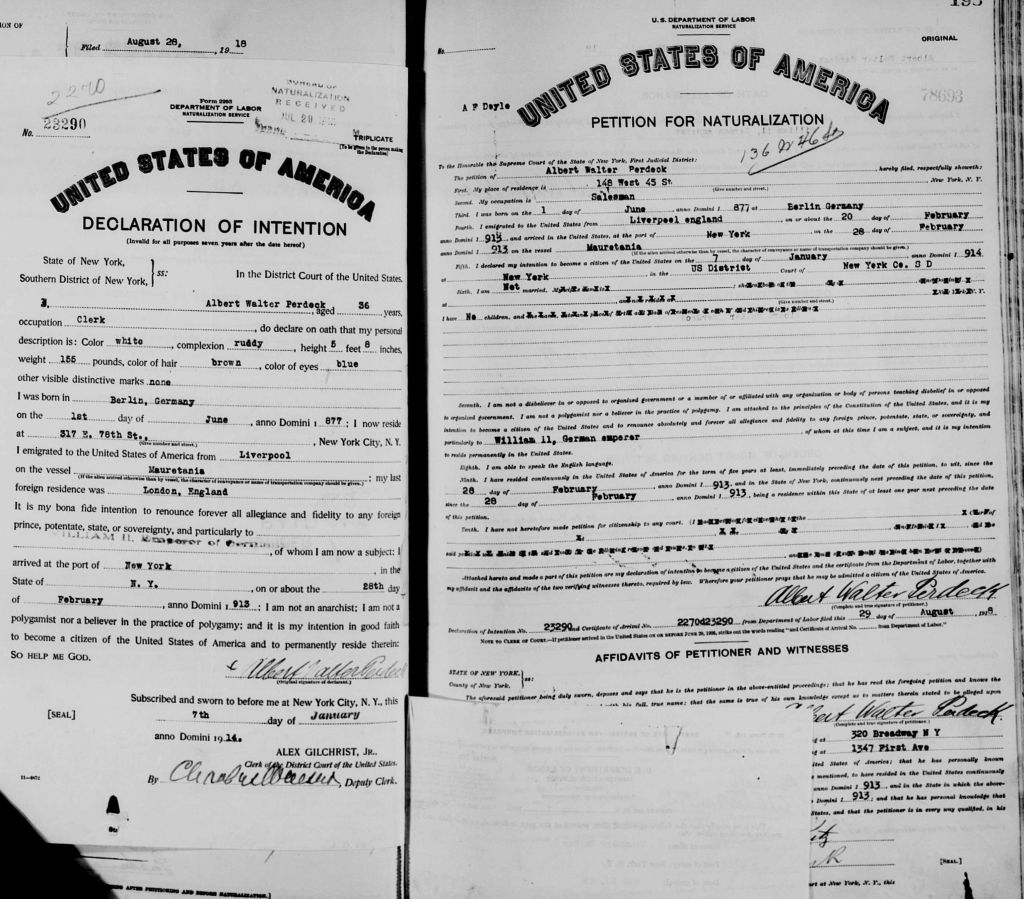 ION OF
Filed August 28, 1918
2270
BUREAU OF
NATURALIZATION
RECEIVED
Form 2203
DEPARTMENT OF LABOR
NATURALIZATION SERVICE
No. 23290
TRIPLICATE
[To be given to the person making the Declaration]
UNITED STATES OF AMERICA
DECLARATION OF INTENTION
(Invalid for all purposes seven years after the date hereof)
State of New York,
Southern District of New York, } ss:
In the District Court of the United States.
I, Albert Walter Perdeck, aged 36 years,
occupation Clerk, do declare on oath that my personal
description is: Color white, complexion ruddy, height 5 feet 8 inches,
weight 155 pounds, color of hair brown, color of eyes blue
other visible distinctive marks none
I was born in Berlin, Germany
on the 1st day of June, anno Domini 1877; I now reside
at 317 E. 78th St., New York City, N. Y.
(Give number and street.)
I emigrated to the United States of America from Liverpool
on the vessel Mauretania; my last
(If the alien arrived otherwise than by vessel, the character of conveyance or name of transportation company should be given.)
foreign residence was London, England
It is my bona fide intention to renounce forever all allegiance and fidelity to any foreign
prince, potentate, state, or sovereignty, and particularly to
WILLIAM II, Emperor of
, of whom I am now a subject; I
arrived at the port of New York, in the
State of N. Y., on or about the 28th day
of February, anno Domini 1913; I am not an anarchist; I am not a
polygamist nor a believer in the practice of polygamy; and it is my intention in good faith
to become a citizen of the United States of America and to permanently reside therein:
SO HELP ME GOD.
Albert Walter Perdeck
(Original signature of declarant.)
Subscribed and sworn to before me at New York City, N. Y., this
[SEAL] 7th day of January
anno Domini 1914.
ALEX GILCHRIST, JR.,
Clerk of the District Court of the United States.
By , Deputy Clerk.
AFTER PETITIONING AND BEFORE NATURALIZATION.]
195
U. S. DEPARTMENT OF LABOR
NATURALIZATION SERVICE
No.
ORIGINAL
78693
A F Doyle
UNITED STATES OF AMERICA
PETITION FOR NATURALIZATION
136 W 46 St
To the Honorable the Supreme Court of the State of New York, First Judicial District:
The petition of Albert Walter Perdeck, hereby filed, respectfully showeth:
First. My place of residence is 148 West 45 St. New York, N. Y.
(Give number and street.)
Second. My occupation is Salesman
Third. I was born on the 1 day of June anno Domini 1877 at Berlin Germany
Fourth. I emigrated to the United States from Liverpool england, on or about the 20 day of February
anno Domini 1913 and arrived in the United States, at the port of New York, on the 28 day of February
anno Domini 1913 on the vessel Mauretania
(If the alien arrived otherwise than by vessel, the character of conveyance or name of transportation company should be given.)
Fifth. I declared my intention to become a citizen of the United States on the 7 day of January anno Domini 1914
at New York, in the US District Court of New York Co. S D
Sixth. I am Not married.
(Give number and street.)
I have No children, and
Seventh. I am not a disbeliever in or opposed to organized government or a member of or affiliated with any organization or body of persons teaching disbelief in or opposed
to organized government. I am not a polygamist nor a believer in the practice of polygamy. I am attached to the principles of the Constitution of the United States, and it is my
intention to become a citizen of the United States and to renounce absolutely and forever all allegiance and fidelity to any foreign prince, potentate, state, or sovereignty, and
particularly to William 11, German emperer, of whom at this time I am a subject, and it is my intention
to reside permanently in the United States.
Eighth. I am able to speak the English language.
Ninth. I have resided continuously in the United States of America for the term of five years at least, immediately preceding the date of this petition, to wit, since the
28 day of February, anno Domini 1913, and in the State of New York, continuously next preceding the date of this petition,
since the 28 day of February, anno Domini 1913, being a residence within this State of at least one year next preceding the date
of this petition.
Tenth. I have not heretofore made petition for citizenship to any court.
Attached hereto and made a part of this petition are my declaration of intention to become a citizen of the United States and the certificate from the Department of Labor, together with
my affidavit and the affidavits of the two verifying witnesses thereto, required by law. Wherefore your petitioner prays that he may be admitted a citizen of the United States of America.
Albert Walter Perdeck
(Complete and true signature of petitioner.)
Declaration of Intention No. 23290 and Certificate of Arrival No. 2270d23290 from Department of Labor filed this 29 day of August, 1918
NOTE TO CLERK OF COURT.—If petitioner arrived in the United States ON OR BEFORE JUNE 29, 1906, strike out the words reading "and Certificate of Arrival No. from Department of Labor."
AFFIDAVITS OF PETITIONER AND WITNESSES
STATE OF NEW YORK,
County of New York, } ss:
The aforesaid petitioner being duly sworn, deposes and says that he is the petitioner in the above-entitled proceedings; that he has read the foregoing petition and knows the
his full, true name; that the same is true of his own knowledge except as to matters therein stated to be alleged upon
Albert Walter Perdeck.
(Complete and true signature of petitioner.)
320 Broadway N Y
1347 First Ave
United States of America; that he has personally known
mentioned, to have resided in the United States continuously
anno Domini 1913, and in the State in which the above-
Domini 1913; and that he has personal knowledge that
States, and that the petitioner is in every way qualified, in his
[SEAL]
at New York, N. Y., this